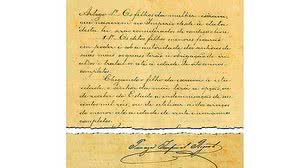 Artigo 1º Os filhos da mulher escrava,
que nascerem no Imperio desde a data
desta lei, serão considerados de condição livre.
§ 1º Os ditos filhos menores ficarão
em poder e sob a autoridade dos senhores de
suas mães, os quaes terão obrigação de
crial-os e tratal-os até a idade de oito annos
completos.
Chegando o filho da escrava a esta
idade, o senhor da mãi terá a opção, ou
de receber do Estado a indemnização de seis
centos mil reis, ou de utilisar-se dos serviços
do menor até a idade de vinte e um annos
completos.